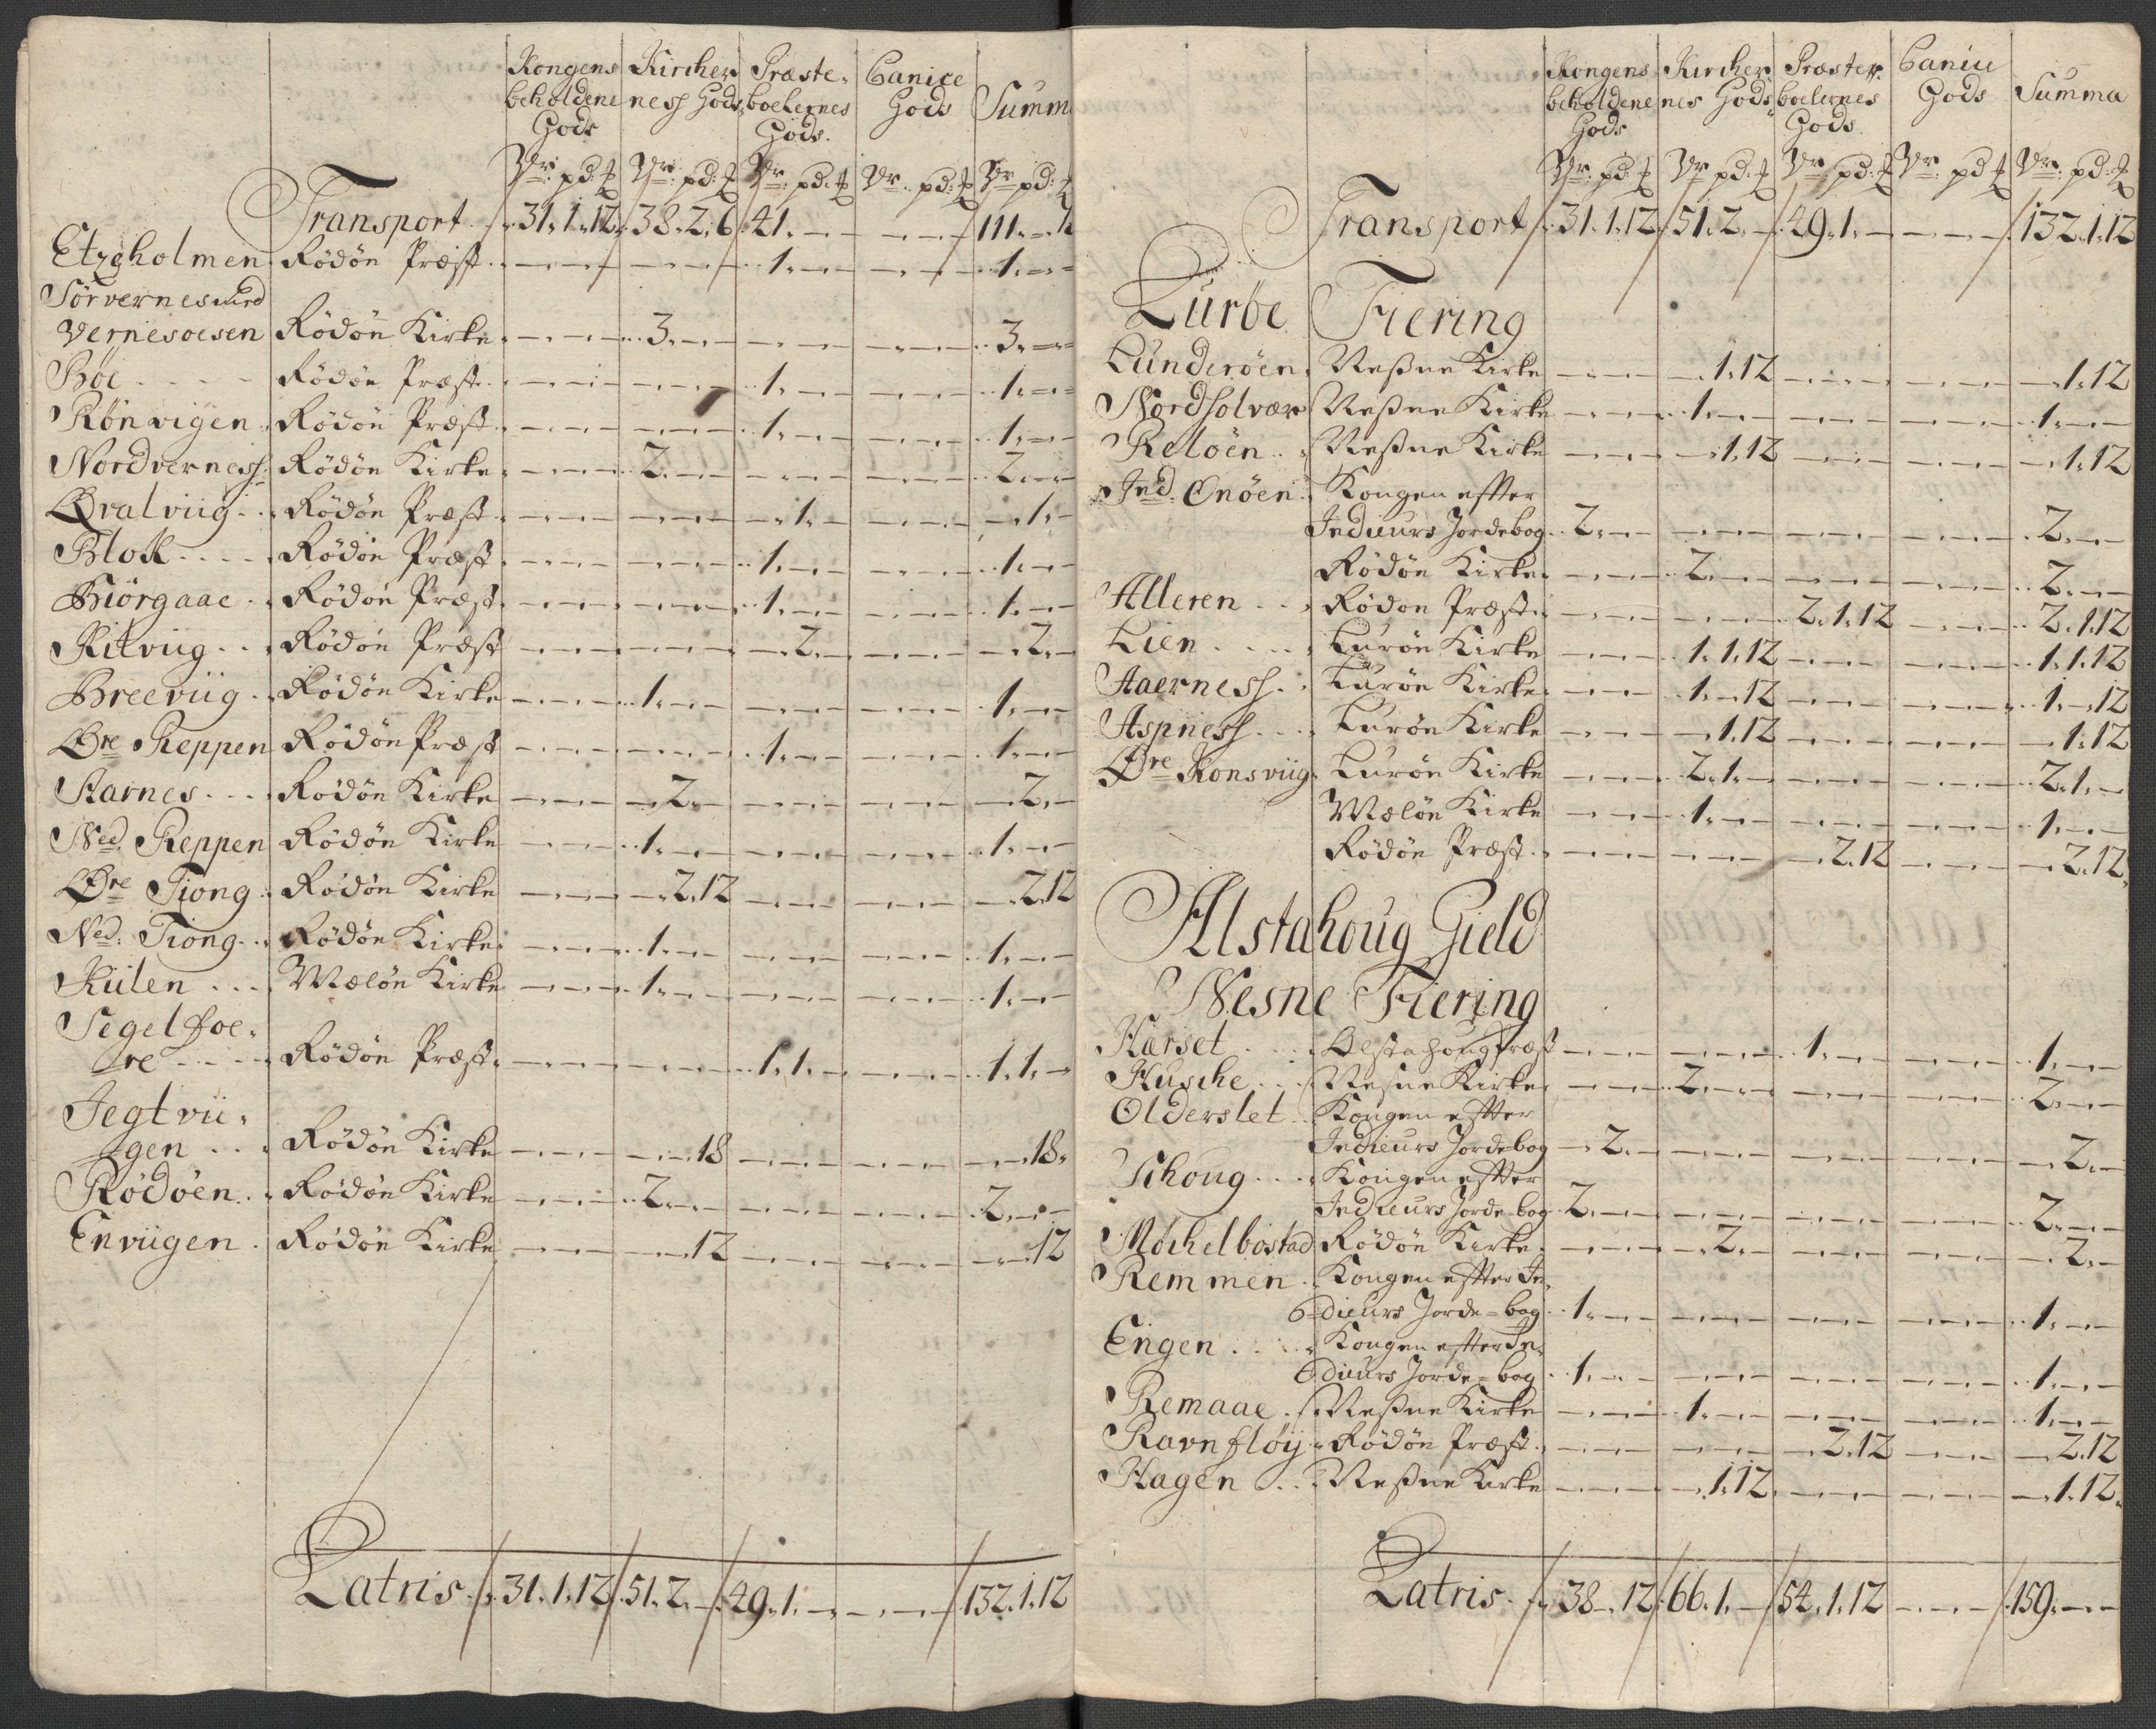 Kongens Kircher Præste- Canice
beholdene ness Gods boelernes Gods Summ
Gods Gods.
Vr: pd: Vr: pd: Vr: pd: Vr: pd: Vr pd:
Transport 31. 1. 12 38. 2. 6 41. - - - - - 111. - 1
Etzholmen Rödön Præst. - - - - - - 1. - - - - - 1. - -
Sörvernes med
Vernesoesen Rödön Kirke - - - 3. - - - - - - - - 3. - -
Böe Rödön Præst. - - - - - - 1. - - - - - 1. - -
Rönvigen Rödön Præst. - - - - - - 1. - - - - - 1. - -
Nordverness. Rödön Kirke - - - 2. - - - - - - - - 2. - -
Qvalviig Rödön Præst. - - - - - - - 1. - - - - - 1. -
Blok Rödön Præst - - - - - - 1. - - - - - 1. - -
Biörgaae Rödön Præst. - - - - - - 1. - - - - - 1. - -
Kitviig Rödön Præst - - - - - - - 2. - - - - - 2. -
Breeviig Rödön Kirke - - - 1. - - - - - - - - 1. - -
Øre Reppen Rödön Præst - - - - - - 1. - - - - - 1. - -
Aarnes Rödön Kirke - - - - 2. - - - - - - - - 2. -
Ned. Reppen Rödön Kirke - - - 1. - - - - - - - - 1. - -
Øre Tiong Rödön Kirke - - - - 2. 12 - - - - - - - 2. 12
Ned: Tiong Rödön Kirke - - - 1. - - - - - - - - 1. - -
Kiilen Mæløn Kirke - - - 1. - - - - - - - - 1. - -
Segelfoe-
re Rödön Præst. - - - - - - 1. 1. - - - - 1. 1. -
Jegtvii-
gen Rödön Kirke - - - - - 18 - - - - - - - - 18.
Rödöen Rödön Kirke - - - 2. - - - - - - - - 2. - -
Enviigen Rödön Kirke - - - - - 12 - - - - - - - - 12
Latris. 31. 1. 12 51. 2. - 49. 1. - - - - 132. 1. 12
Kongens Kircher Præster- Caniu
beholdene nes Gods boelernes Gods Summa
Gods Gods.
Vr: pd: Vr pd: Vr: pd: Vr: pd Vr: pd:
Transport 31. 1. 12 51. 2. - 49. 1. - - - - 132. 1. 12
Luröe Fiering
Lunderöen Neßne Kirke - - - - 1. 12 - - - - - - - 1. 12
Nordsolvær Neßne Kirke - - - 1. - - - - - - - - 1. - -
Reløen Neßne Kirke - - - - 1. 12 - - - - - - - 1. 12
Ind. Onøen Kongen effter
Jedieurs Jordebog 2. - - - - - - - - - - - 2. - -
Rödön Kirke - - - 2. - - - - - - - - 2. - -
Alleren Rödön Præst. - - - - - - 2. 1. 12 - - - 2. 1. 12
Lien Lurön Kirke - - - 1. 1. 12 - - - - - - 1. 1. 12
Aaerness. Lurön Kirke. - - - 1. - 12 - - - - - - 1. - 12
Aspness Lurön Kirke - - - - 1. 12 - - - - - - - 1. 12
Øre Konsviig Lurön Kirke - - - 2. 1. - - - - - - - 2. 1. -
Mæløn Kirke - - - 1. - - - - - - - - 1. - -
Rödön Præst. - - - - - - - 2. 12 - - - - 2. 12.
Alstahoug Gield
Nesne Fiering
Harset Alstahoug Præst - - - - - - 1. - - - - - 1. - -
Husche Nesne Kirke - - - 2. - - - - - - - - 2. - -
Olderslet Kongen effter
Jedieurs Jordebog - 2. - - - - - - - - - - - 2. -
Schoug Kongen effter
Jedieurs Jorde-bog 2. - - - - - - - - - - - 2. - -
Mochelbostad Rödön Kirke - - - - 2. - - - - - - - - 2. -
Remmen Kongen effter Je-
dieurs Jorde-bog 1. - - - - - - - - - - - 1. - -
Engen Kongen effter Je-
dieurs Jorde-bog 1. - - - - - - - - - - - 1. - -
Remaae Neßne Kirke - - - 1. - - - - - - - - 1. - -
Ravnfløy Rödön Præst. - - - - - - - 2. 12 - - - - 2. 12
Hagen Neßne Kirke - - - - 1. 12. - - - - - - - 1. 12.
Latris. 38. - 12 66. 1. - 54. 1. 12 - - - 159. - -